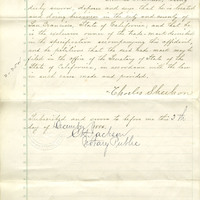 duly sworn, deposes and says that he is located
and doing business in the city and county of
San Francisco, State of California, and that he
is the exclusive owner of the trade mark described
in the specification accompanying this affidavit,
and he petitions that the said trade mark may be
filed in the office of the Secretary of State of the
State of California, in accordance with the law
in such case made and provided.
Charles
Subscribed and sworn to before me this 5th
day of
Jackson
Notary Public